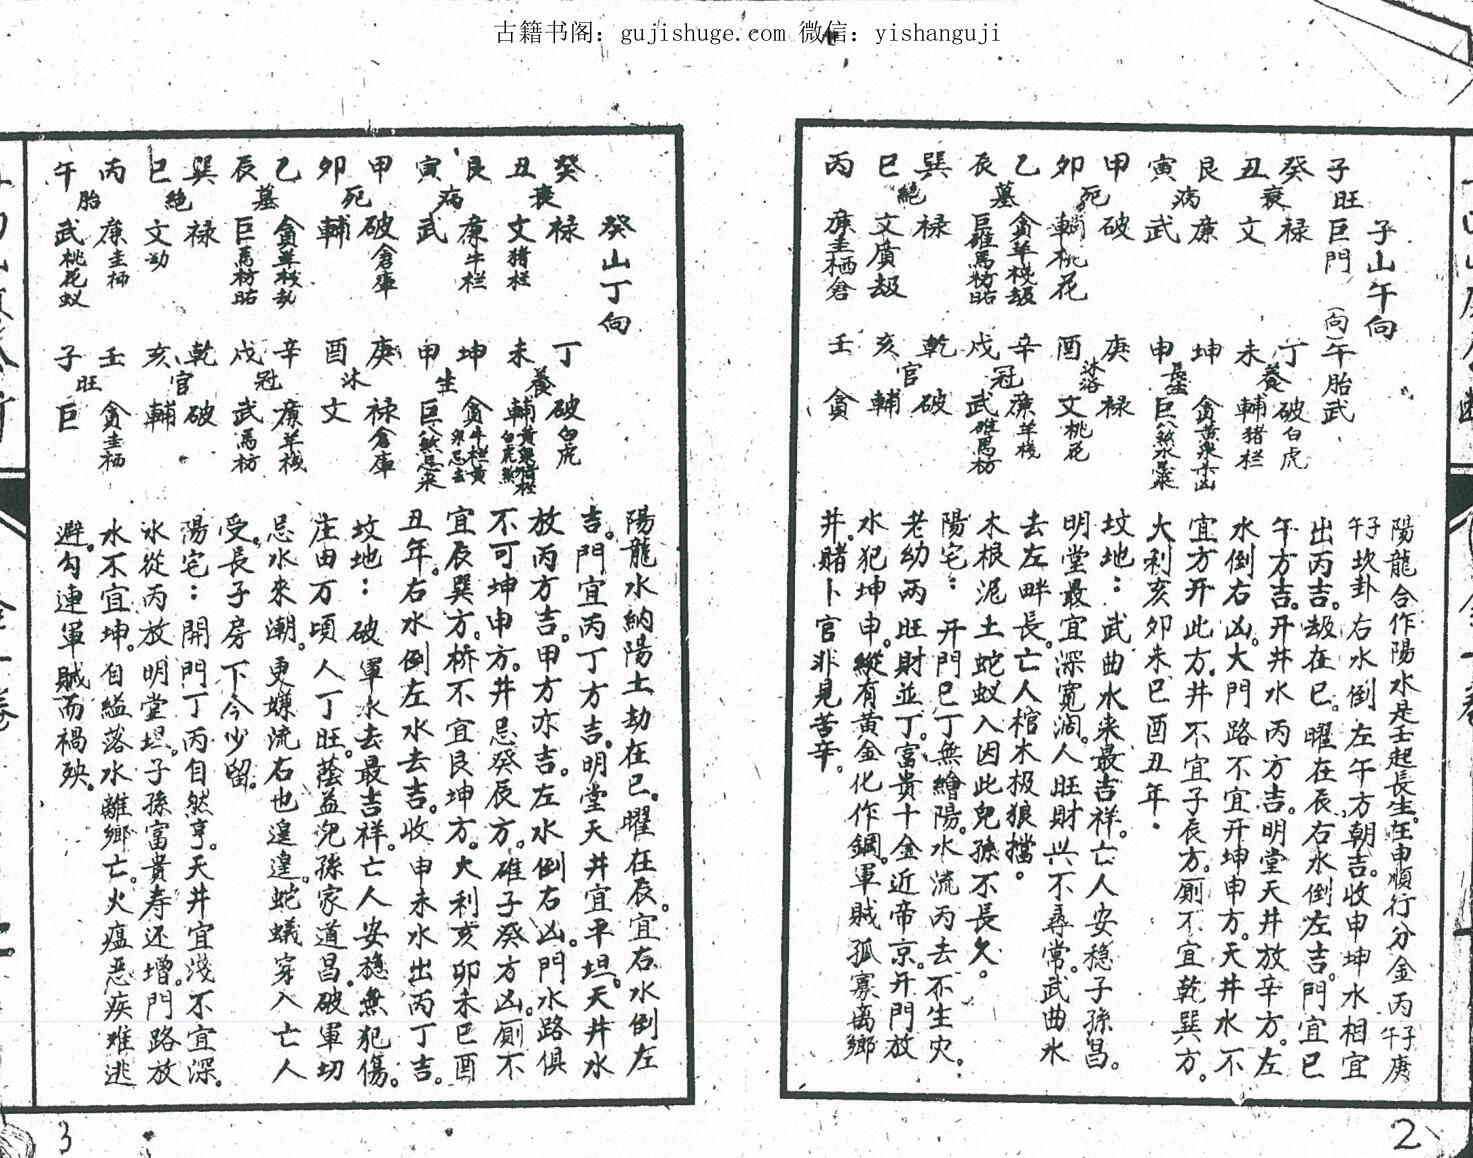 古籍书阁：gujishuge.com 微信：yishanguji
子山午向
子 旺 巨門 （向）午胎武
癸 祿 丁 破白虎
衰 養
丑 文 未 輔猪栏
艮 廉 坤 貪黄泉
病
寅 武 申 巨八煞
甲 破 庚 禄
死 沐浴
卯 輔桃花 酉 文桃花
乙 貪羊栈劫 辛 廉羊栈
墓 冠
辰 巨碓馬枋 戌 武碓馬枋
巽 禄 乾 破
絕 官
巳 文廣劫 亥 輔
丙 廉圭栖倉 壬 貪
陽龍合作陽水是壬起長生在申順行分金丙子午庚
子午坎卦右水倒左午方朝吉。收申坤水相宜
出丙吉。劫在巳。曜在辰右水倒左吉。門宜巳
午方吉。开井水丙方吉。明堂天井放辛方。左
水倒右凶。大門路不宜开坤申方。天井水不
宜方开此方。井不宜子辰方。厠不宜乾巽方。
大利亥卯未巳酉丑年.
坟地：武曲水来最吉祥。亡人安穏子孫昌。
明堂最宜深寛濶。人旺財兴不尋常。武曲水
去左畔長。亡人棺木极狼擋。
木根泥土蛇蚁入因此兒孫不長久。
陽宅：开門巳丁無繪陽。水流丙去不生灾。
老幼兩旺財並丁。富貴十金近帝京。开門放
水犯坤申。縱有黄金化作鋼。軍賊孤寡离鄉
井。賭卜官非見苦辛。
2
癸山丁向
癸 禄 丁 破白虎
衰 養
丑 文猪栏 未 輔
艮 廉牛栏 坤 貪牛栏黄
病 生
寅 武 申 巨八煞忌来
甲 破倉庫 庚 禄倉庫
死 沐
卯 輔 酉 文
乙 貪羊栈 辛 廉羊栈
墓 冠
辰 巨馬枋 戌 武馬枋
巽 禄 乾 破
絕 官
巳 文劫 亥 輔
丙 廉圭栖 壬 貪圭栖
胎 旺
午 武桃花蚁 子 巨
陽龍水納陽土劫在巳。曜在辰。宜右水倒左
吉。門宜丙丁方吉。明堂天井宜平坦。天井水
放丙方吉。甲方亦吉。左水倒右凶。門水路俱
不可坤申方。井忌癸辰方。碓子癸方凶。厠不
宜辰巽方。桥不宜艮坤方。大利亥卯未巳酉
丑年。右水倒左水去吉。收申未水出丙丁吉。
坟地：破軍水去最吉祥。亡人安穏無犯傷。
庄由万頃人丁旺。蔭益兒孫家道昌。破軍切
忌水來潮。更嫌流右也遑遑。蛇蟻穿入亡人
受。長子房下令少留。
陽宅：開門丁丙自然亨。天井宜淺不宜深。
水從丙放明堂坦。子孫富貴寿还增。門路放
水不宜坤。自縊落水離鄉亡。火瘟恶疾难逃
避。勾連軍賊而禍殃。
3